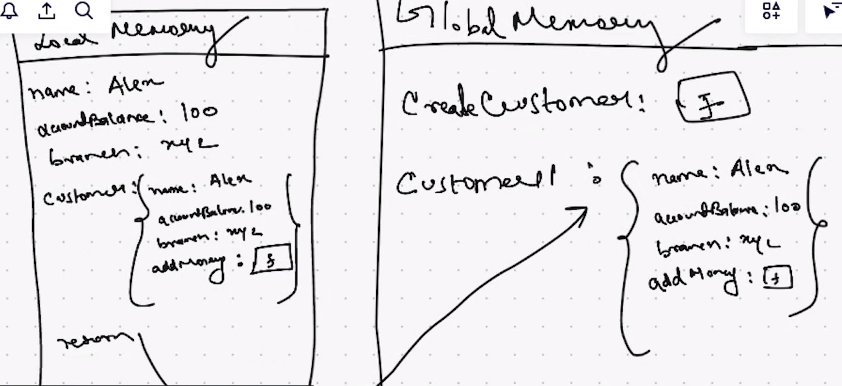 Local Memory
name: Alex
accountBalance: 100
branch: xyz
customer: { name: Alex
accountBalance: 100
branch: xyz
addMoney : f }
return
Global Memory
CreateCustomer: f
Customer1 : { name: Alex
accountBalance: 100
branch: xyz
addMoney : f }